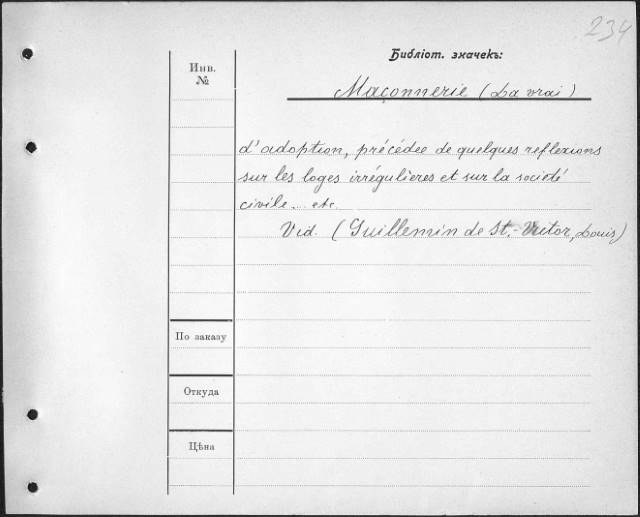 234
Библіот. значекъ:
Инв.
№
Maçonnerie (La vrai)
d'adoption, précédée de quelques reflexions
sur les loges irrégulieres et sur la société
civile... etc.
Vid. (Guillemin de St.-Victor, Louis)
По заказу
Откуда
Цѣна